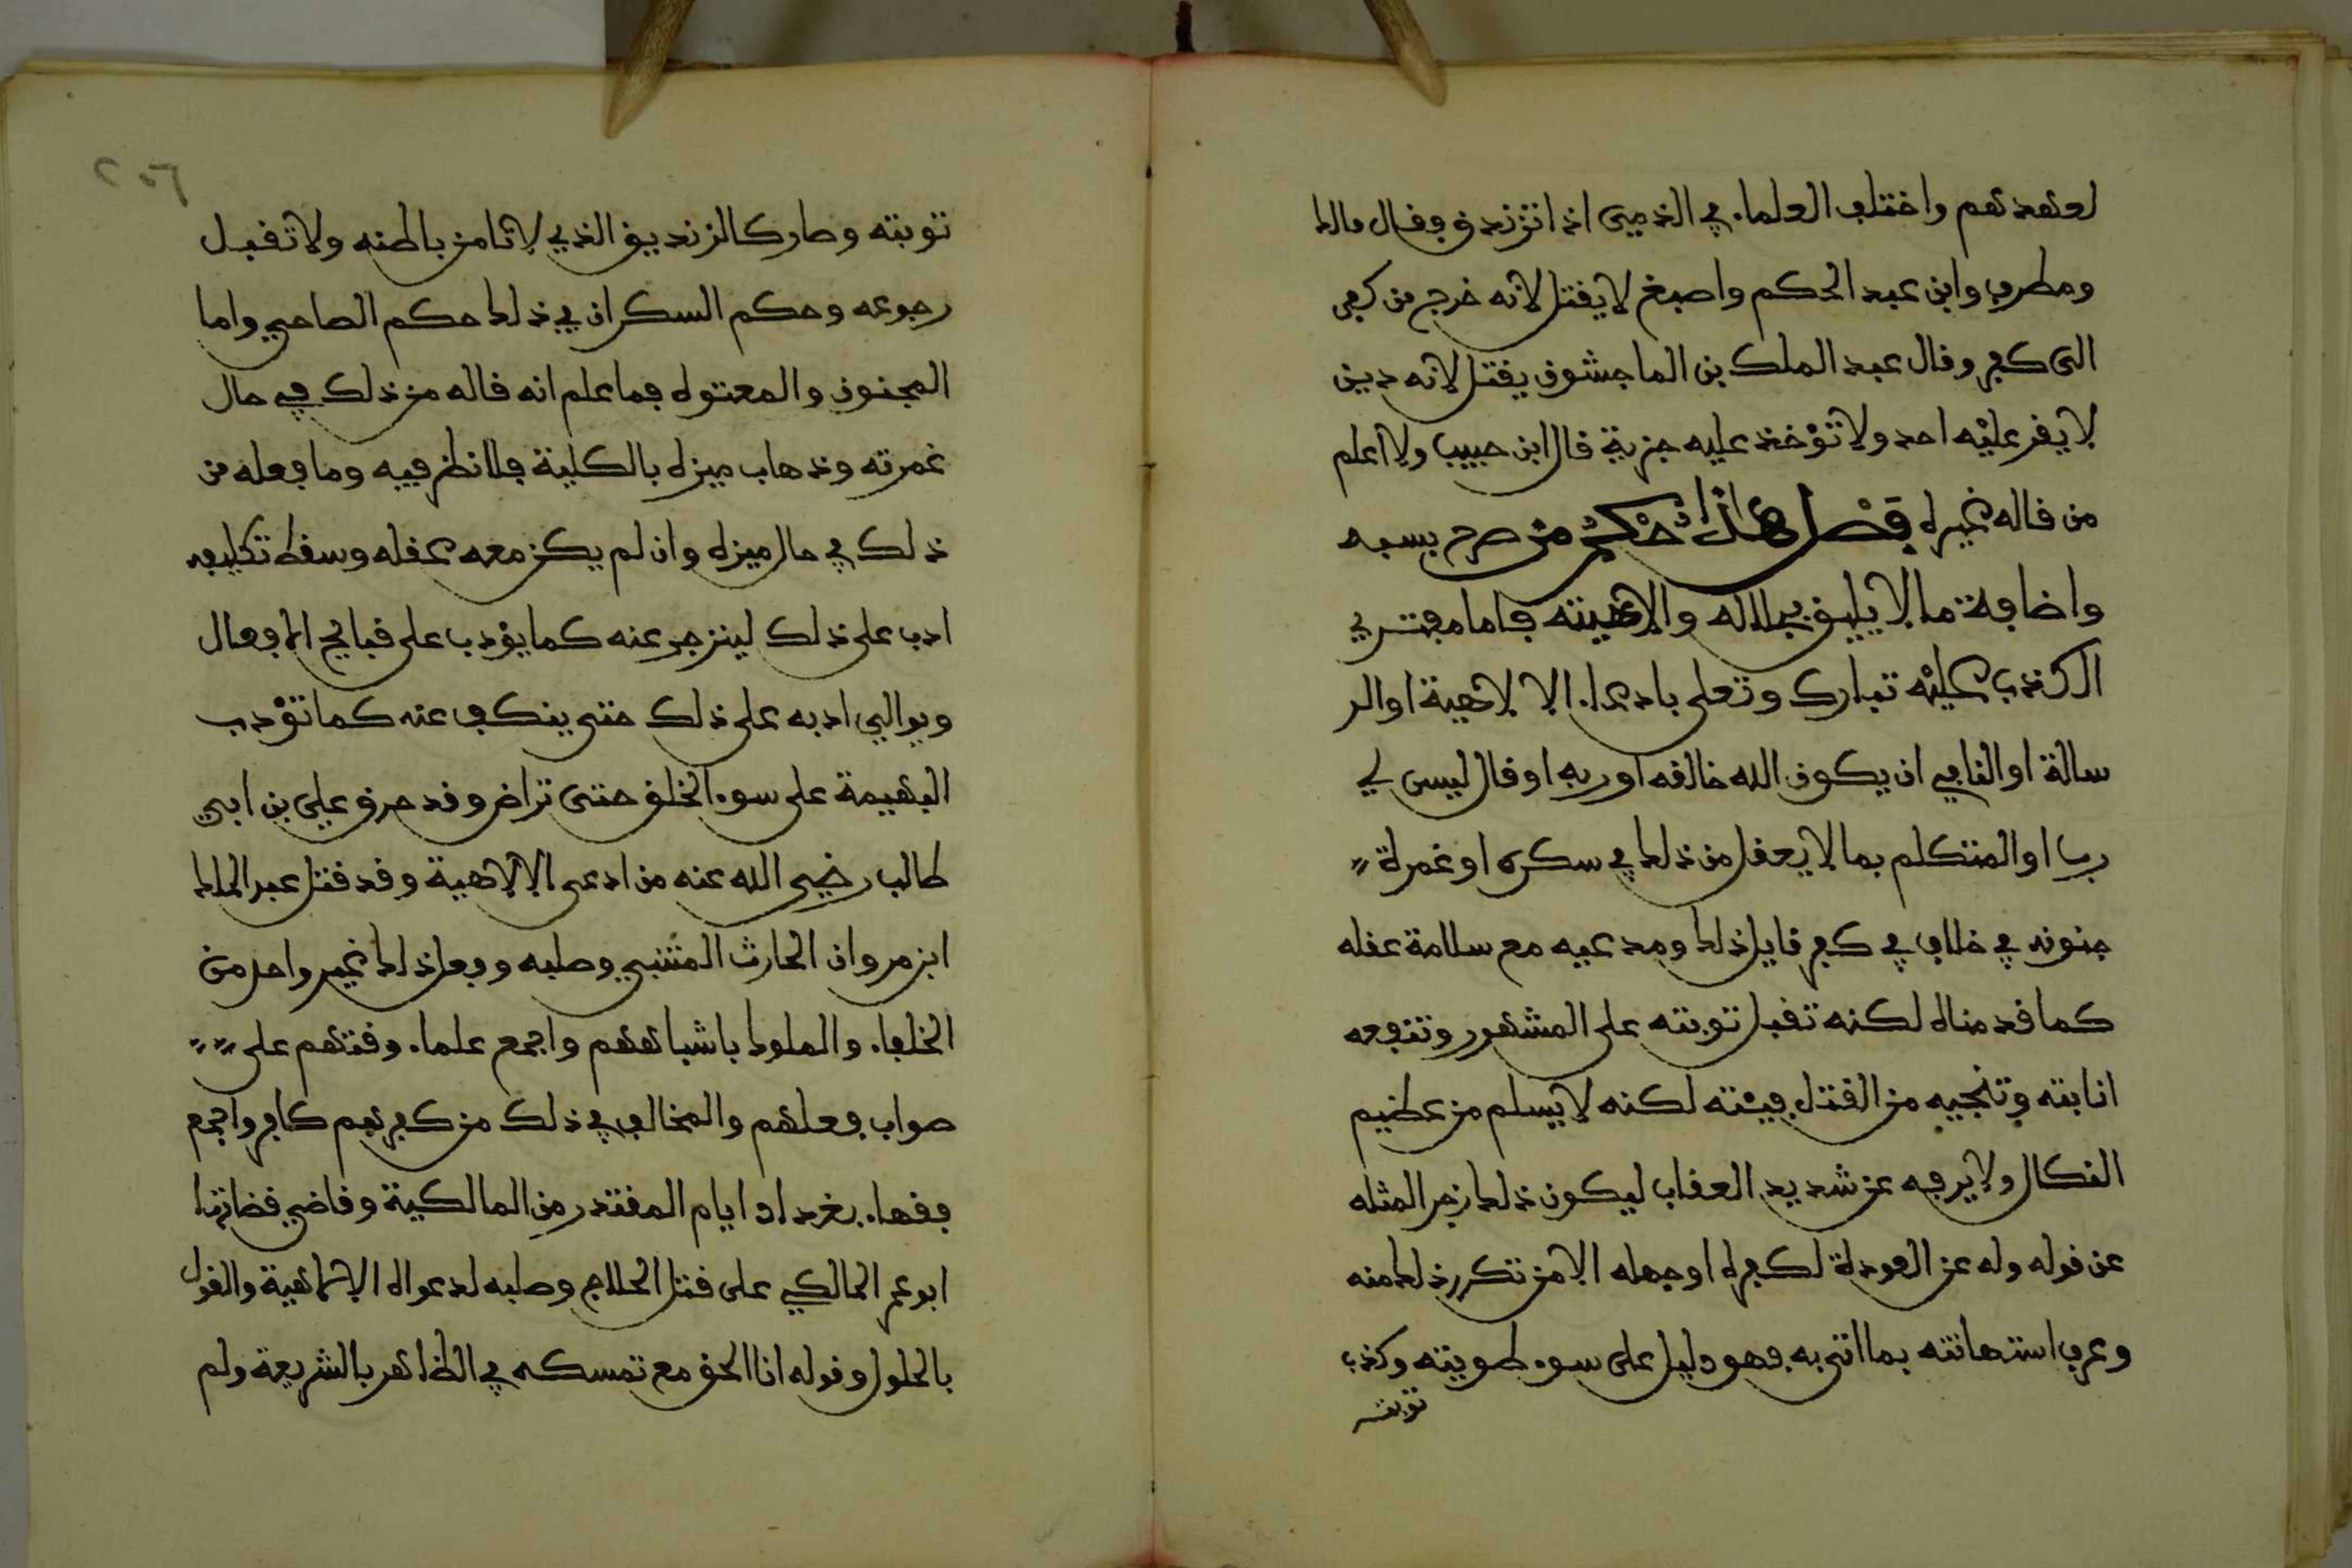 لعهدهم واختلف العلماء في الذميى اذا تزندق فقال مالك
ومطرف وابن عبد الحكم واصبغ لا يقتل لانه خرج من كفر
الى كفر وقال عبد الملك بن الماجشون يقتل لانه دين
لا يقر عليه احد ولا تؤخذ عليه جزية قال ابن حبيب ولا اعلم
من قاله غيره فصل هذا حكم من صرح بسبه
واضافة ما لا يليق بجلاله والاهيته فاما مفتري
الكذب عليه تبارك وتعلى بادعاء الا لاهية او الر
سالة او النافي ان يكون الله خالقه او ربه او قال ليس لي
رب او المتكلم بما لا يعقل من ذلك في سكره او غمرة
جنونه في خلاف في كفر قايل ذلك ومدعيه مع سلامة عقله
كما قدمناه لكنه تقبل توبته على المشهور وتنفعه
انابته وتنجيه من القتل فيئته لكنه لا يسلم من عظيم
النكال ولا يرفه عن شديد العقاب ليكون ذلك زجرا لمثله
عن قوله وله عن العودة لكفره او جهله الا من تكرر ذلك منه
وعرف استهانته بما اتى به فهو دليل على سوء طويته وكذب
توبته
٢٥٦
توبته وصار كالزنديق الذي لا تامن باطنه ولا تقبل
رجوعه وحكم السكران في ذلك حكم الصاحي واما
المجنون والمعتوه فما علم انه قاله من ذلك في حال
غمرته وذهاب ميزه بالكلية فلا نظر فيه وما فعله من
ذلك في حال ميزه وان لم يكن معه عقله وسقط تكليفه
ادب على ذلك لينزجر عنه كما يؤدب على قبايح الافعال
ويوالي ادبه على ذلك حتى ينكف عنه كما تؤدب
البهيمة على سوء الخلق حتى تراض وقد حرق علي بن ابي
طالب رضي الله عنه من ادعى الالاهية وقد قتل عبد الملك
ابن مروان الحارث المتنبي وصلبه وفعل ذلك غير واحد من
الخلفاء والملوك باشباههم واجمع علماء وقتهم على
صواب فعلهم والمخالف في ذلك من كفرهم كافر واجمع
فقهاء بغداد ايام المقتدر من المالكية وقاضي قضاتها
ابو عمر المالكي على قتل الحلاج وصلبه لدعواه الالاهية والقول
بالحلول وقوله انا الحق مع تمسكه في الظاهر بالشريعة ولم